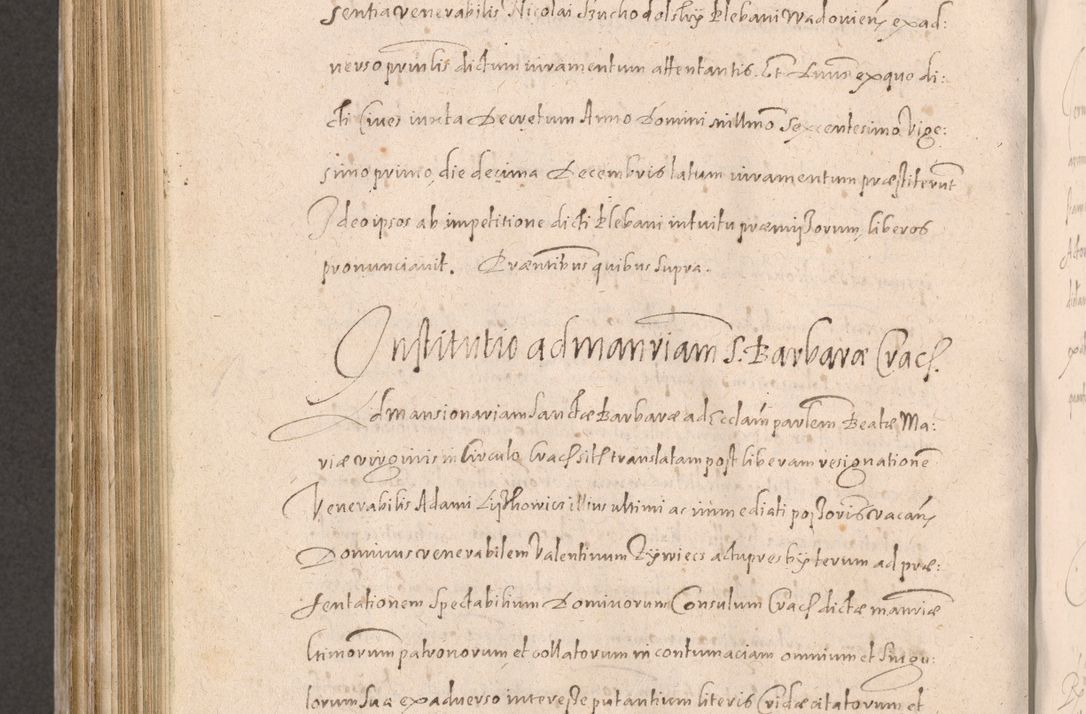 sentia venerabilis Nicolai Szuchodolsky Plebani Wadovien, ex ad:
verso prmlis dictum iuramentum attentantis. Et Dnus ex quo di:
cti Cives iuxta Decretum Anno Domini millmo Sexcentesimo Vige:
simo primo, die decima Decembris latum iuramentum præstiterunt
Ideo ipsos ab impetitione dicti Plebani intuitu præmissorum, liberos
pronunciavit. Præntibus quibus supra.
Institutio ad manriam S. Barbaræ Crac.
Ad mansionariam Sanctæ Barbaræ ad Ecclam parlem Beatæ Ma:
riæ virginis in Circulo Crac. sit. translatam post liberam resignatione
Venerabilis Adami illius ultimi ac immediati possoris vacan,
Dominus venerabilem Valentinum Zywiecs actu presbyterum ad præ:
sentationem Spectabilium Dominorum Consulum Crac. dictæ manriæ
ltimorum patronorum et collatorum in contumaciam omnium et singu:
lorum sua ex adverso interesse putantium literis Cridæ citatorum et